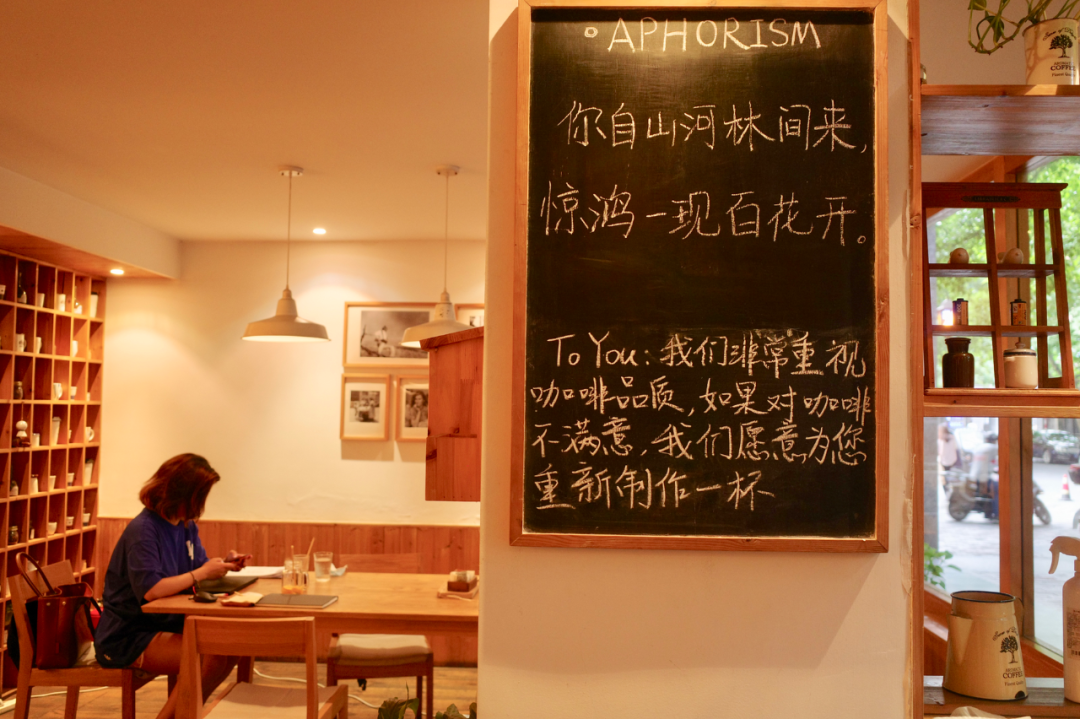 APHORISM
你自山河林间来,
惊鸿一现百花开。
To You: 我们非常重视
咖啡品质,如果对咖啡
不满意,我们愿意为您
重新制作一杯
COFFEE
COFFEE